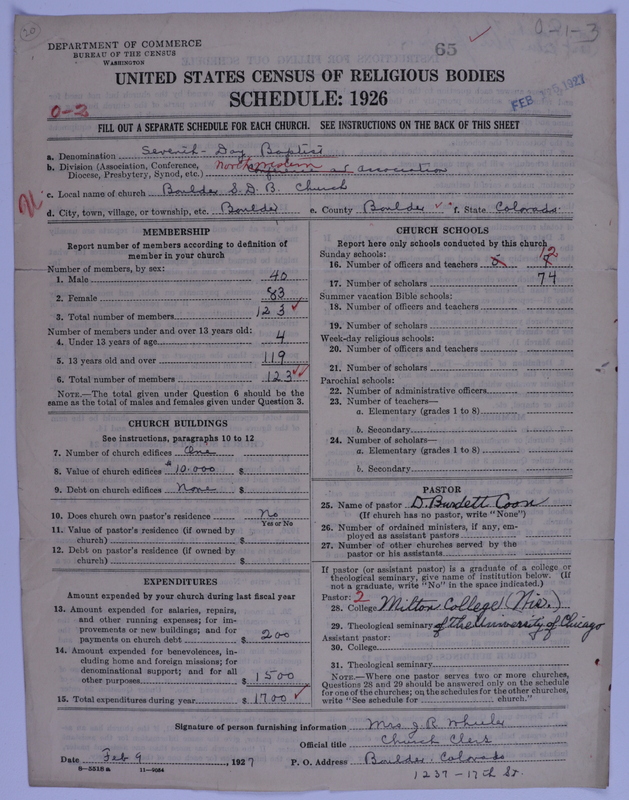 20
0-1-3
DEPARTMENT OF COMMERCE
BUREAU OF THE CENSUS
WASHINGTON
65
UNITED STATES CENSUS OF RELIGIOUS BODIES
SCHEDULE: 1926
FEB 1927
0-2
FILL OUT A SEPARATE SCHEDULE FOR EACH CHURCH. SEE INSTRUCTIONS ON THE BACK OF THIS SHEET
a. Denomination Seventh-Day Baptist
b. Division (Association, Conference, Diocese, Presbytery, Synod, etc.) association
c. Local name of church Boulder S.D.B. Church
d. City, town, village, or township, etc. Boulder e. County Boulder f. State Colorado
MEMBERSHIP
Report number of members according to definition of
member in your church
Number of members, by sex:
1. Male 40
2. Female 83
3. Total number of members 123
Number of members under and over 13 years old:
4. Under 13 years of age 4
5. 13 years old and over 119
6. Total number of members 123
NOTE.—The total given under Question 6 should be
same as the total of males and females given under Question 3.
CHURCH BUILDINGS
See instructions, paragraphs 10 to 12
7. Number of church edifices One
8. Value of church edifices $10.000 $
9. Debt on church edifices None $
10. Does church own pastor's residence No
Yes or No
11. Value of pastor's residence (if owned by
church) $
12. Debt on pastor's residence (if owned by
church) $
EXPENDITURES
Amount expended by your church during last fiscal year
13. Amount expended for salaries, repairs,
and other running expenses; for im-
provements or new buildings; and for
payments on church debt $ 200
14. Amount expended for benevolences, in-
cluding home and foreign missions; for
denominational support; and for all
other purposes $ 1500
15. Total expenditures during year $ 1700
CHURCH SCHOOLS
Report here only schools conducted by this church
Sunday schools:
16. Number of officers and teachers 12
17. Number of scholars 74
Summer vacation Bible schools:
18. Number of officers and teachers
19. Number of scholars
Week-day religious schools:
20. Number of officers and teachers
21. Number of scholars
Parochial schools:
22. Number of administrative officers
23. Number of teachers—
a. Elementary (grades 1 to 8)
b. Secondary
24. Number of scholars—
a. Elementary (grades 1 to 8)
b. Secondary
PASTOR
25. Name of pastor D. Burdett Coon
(If church has no pastor, write "None")
26. Number of ordained ministers, if any, em-
ployed as assistant pastors
27. Number of other churches served by the
pastor or his assistants
If pastor (or assistant pastor) is a graduate of a college or
theological seminary, give name of institution below. (If
not a graduate, write "No" in the space indicated.)
Pastor: 2
28. College Milton College (Wis.)
29. Theological seminary of the University of Chicago
Assistant pastor:
30. College
31. Theological seminary
NOTE.—Where one pastor serves two or more churches,
Questions 28 and 29 should be answered only on the schedule
for one of the churches; on the schedules for the other churches,
write "See schedule for church."
Signature of person furnishing information Mrs J. R. Wheeler
Official title Church Clerk
Date Feb 9, 1927 P. O. Address Boulder Colorado
8-5518a 11-9054 1237-17th St.